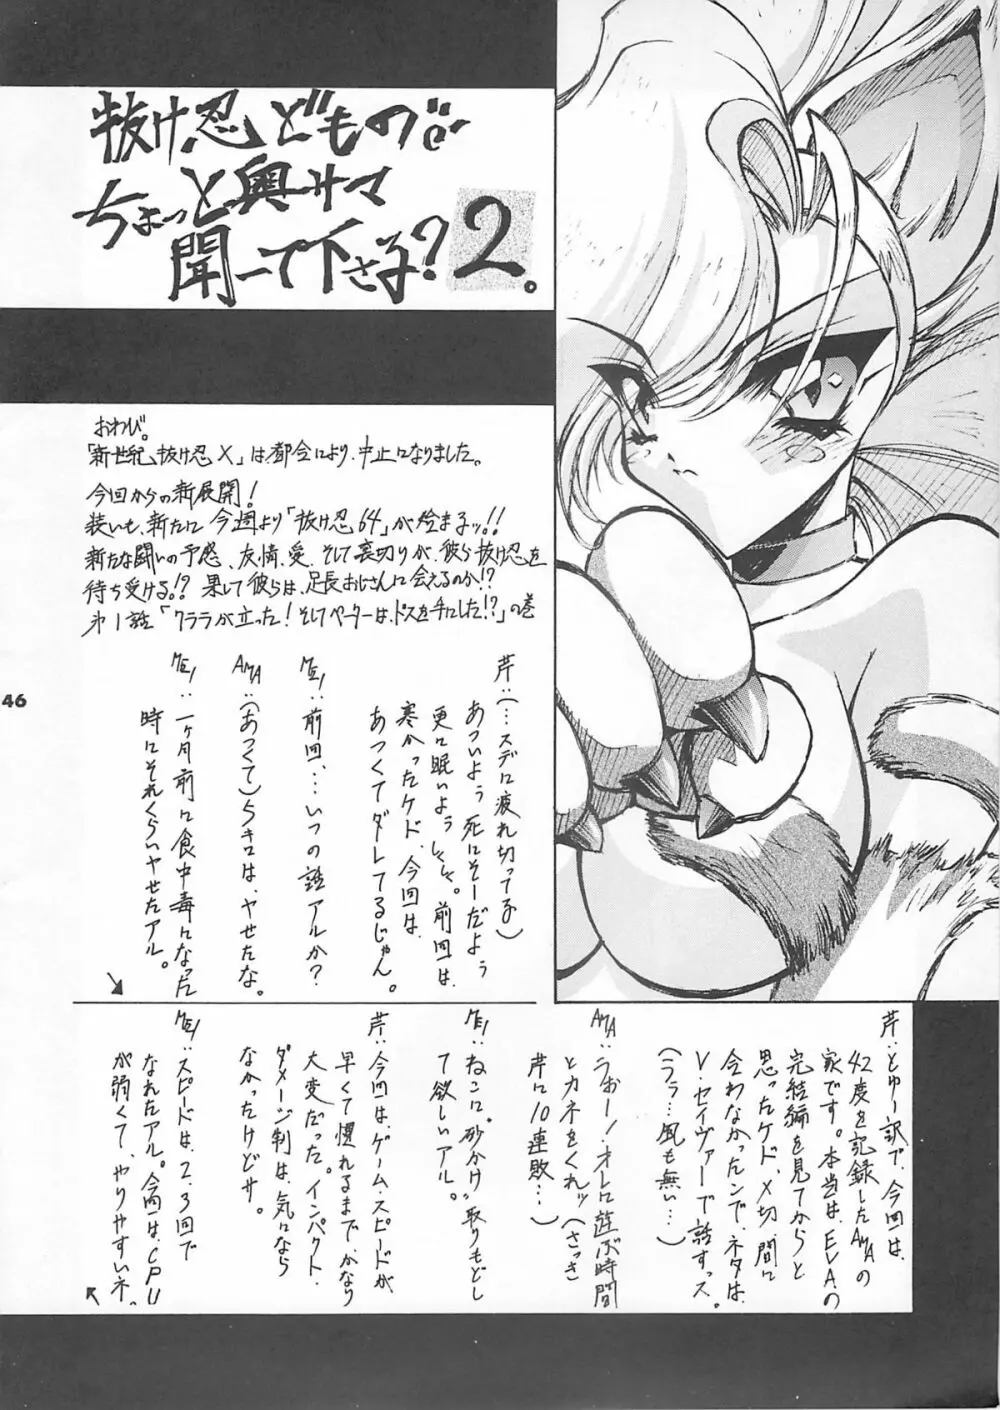 抜け忍どもの
ちょっと奥サマ
聞ーて下さる?2。
おわび。
「新世紀抜け忍X」は都合により、中止になりました。
今回からの新展開!
装いも新たに今週より「抜け忍64」が始まるッ!!
新たな闘いの予感、友情、愛、そして裏切りが、彼ら抜け忍を
待ち受ける!?果して彼らは、足長おじさんに会えるのか!?
第1話「クララが立った!そしてペーターは、ドスを手にした!?」の巻
芹:(…スデに疲れ切ってる)
あついよう死にそーだよう
更に眠いようしくしく。前回は、
寒かったケド、今回は、
あつくてダレてるじゃん。
MEI:前回、…いつの話アルか?
AMA:(あつくて)ちきには、ヤせたな。
MEI:一ヶ月前に食中毒になった
時にそれくらいヤせたアル。
芹:とゆー訳で、今回は、
42度を記録したAMAの
家です。本当は、EVAの
完結編を見てからと
思ったケド、〆切に間に
合わなかったンで、ネタは、
V・セイヴァーで話すっス。
(うう…風も無い…)
AMA:うおー!オレに遊ぶ時間
とカネをくれッ(さっき
芹に10連敗…)
MEI:ねこに“砂かけ”取りもどし
て欲しいアル。
芹:今回はゲーム・スピードが、
早くて慣れるまで、かなり
大変だった。インパクト、
ダメージ判は、気になら
なかったけどサ。
MEI:スピードは、2、3回で
なれたアル。今回は、CPU
が弱くて、やりやすいネ。
46